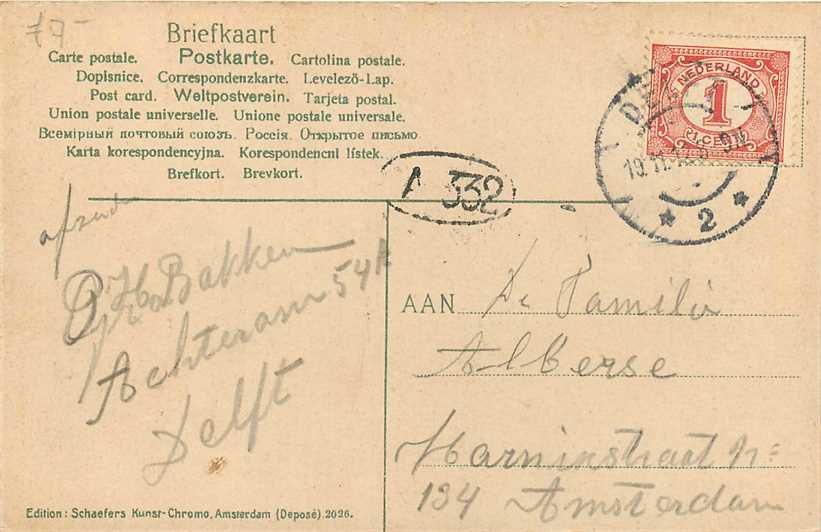 17-
Briefkaart
Carte postale. Postkarte. Cartolina postale.
Dopisnice. Correspondenzkarte. Levelező-Lap.
Post card. Weltpostverein. Tarjeta postal.
Union postale universelle. Unione postale universale.
Всемірный почтовый союзъ. Россія. Открытое письмо.
Karta korespondencyjna. Korespondencní lístek.
Brefkort. Brevkort.
NEDERLAND
1
CENT
DELFT
19.11
2
A 332
afzender
P H Bakken
Achterom 54A
Delft
AAN De Familie
Alberse
Harninstraat No
134 Amsterdam
Edition: Schaefers Kunst-Chromo, Amsterdam (Deposé). 2026.